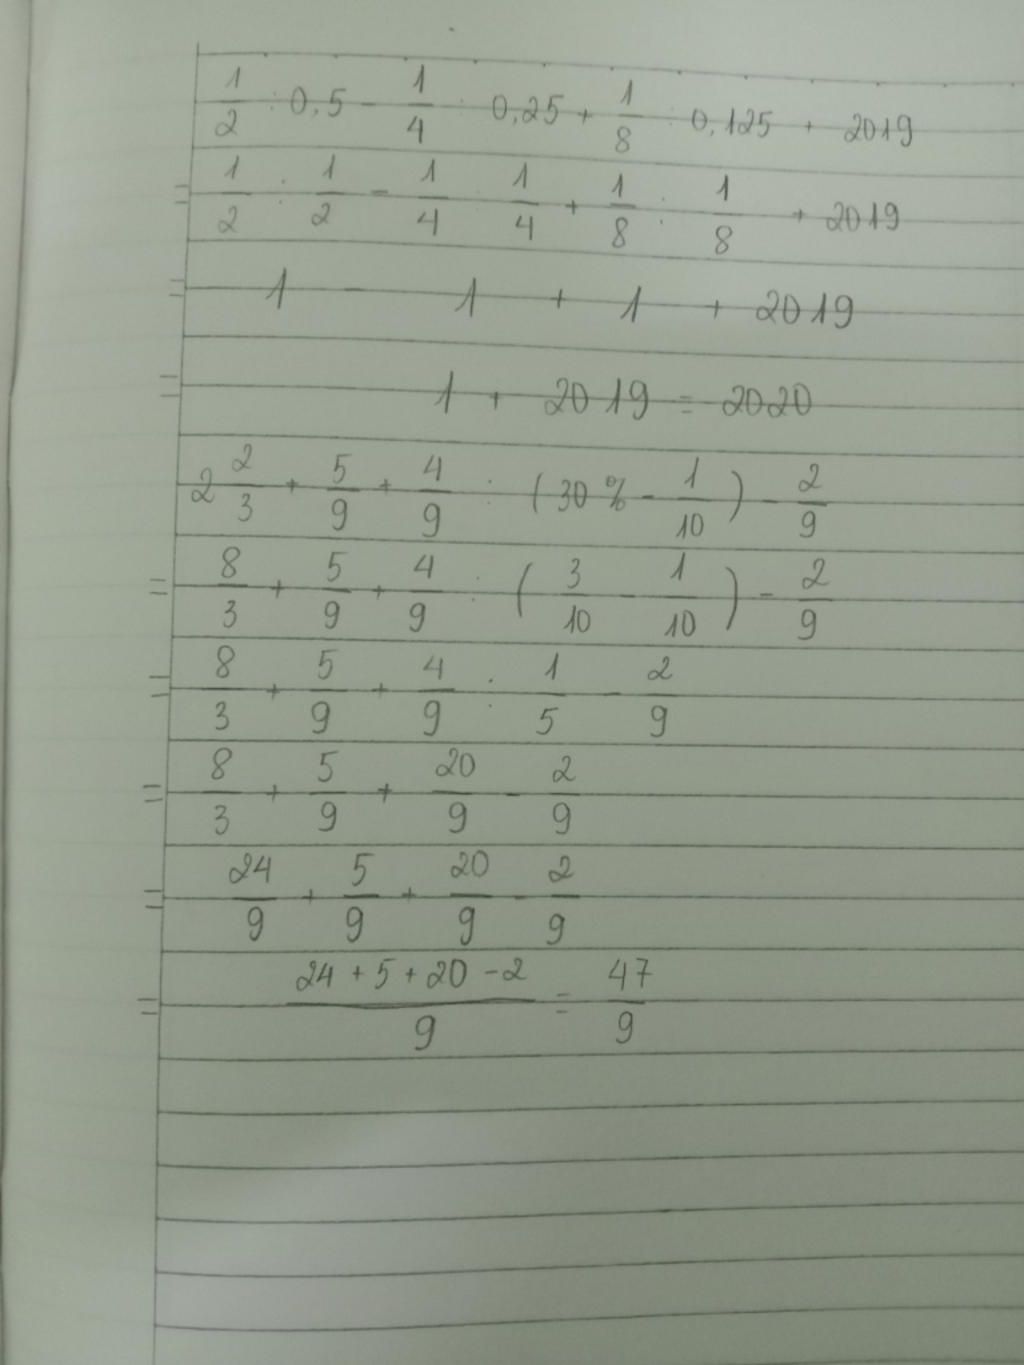 1/2 : 0,5 - 1/4 : 0,25 + 1/8 : 0,125 + 2019
= 1/2 : 1/2 - 1/4 : 1/4 + 1/8 : 1/8 + 2019
= 1 - 1 + 1 + 2019
= 1 + 2019 = 2020
2 2/3 + 5/9 + 4/9 : (30% - 1/10) - 2/9
= 8/3 + 5/9 + 4/9 : (3/10 - 1/10) - 2/9
= 8/3 + 5/9 + 4/9 : 1/5 - 2/9
= 8/3 + 5/9 + 20/9 - 2/9
= 24/9 + 5/9 + 20/9 - 2/9
= (24 + 5 + 20 - 2)/9 = 47/9